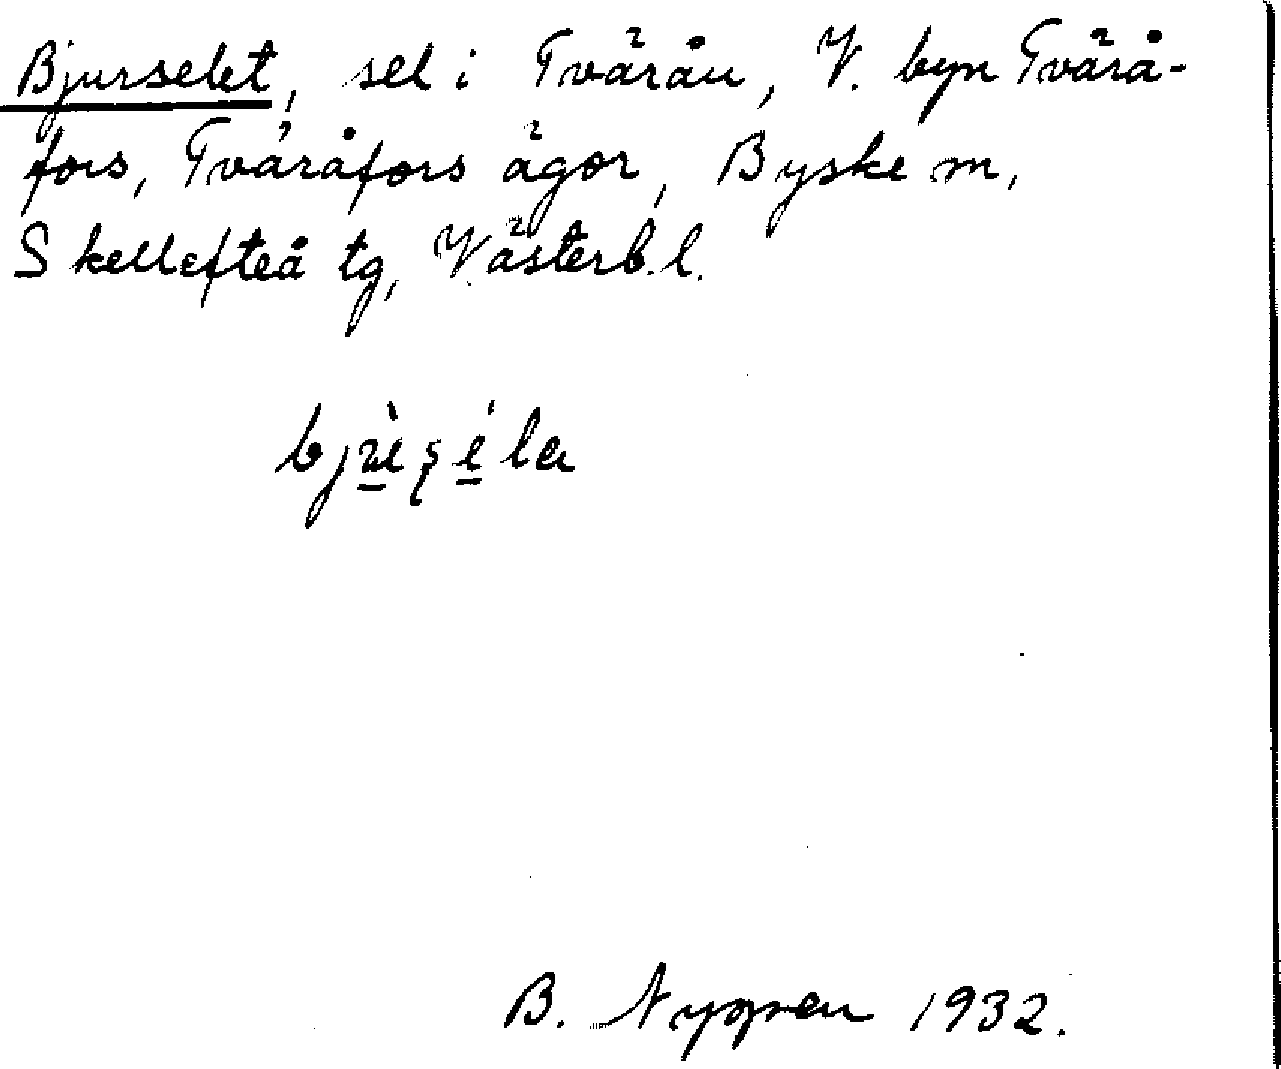 Bjurselet, sel i Tväråu, V. byn Tvärå-
fors, Tväråfors ägor, Byske sn,
Skellefteå tg, Västerb. l.
B. Nygren 1932.